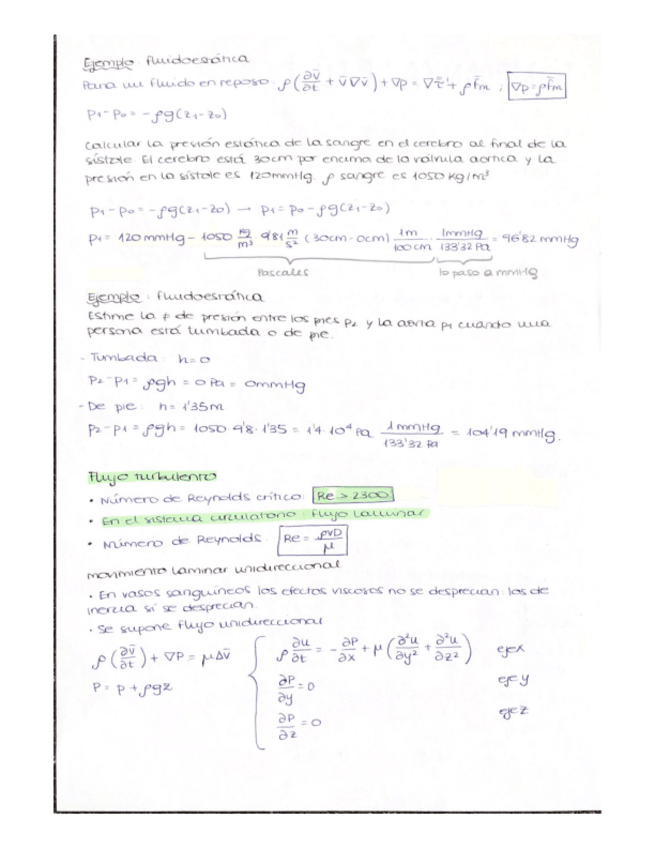 Ejemplo: fluidoestática
Para un fluido en reposo: ρ(∂v̄/∂t + v̄∇v̄) + ∇p = ∇τ̄' + ρf̄m ; ∇p = ρf̄m
p1 - p0 = -ρg(z1-z0)
Calcular la presión estática de la sangre en el cerebro al final de la
sístole. El cerebro está 30cm por encima de la válvula aórtica y la
presión en la sístole es 120mmHg. ρ sangre es 1050 kg/m³
p1 - p0 = -ρg(z1-z0) → p1 = p0 - ρg(z1-z0)
p1 = 120 mmHg - 1050 kg/m³ · 9'81 m/s² (30cm - 0cm) 1m/100cm · 1mmHg/133'32 Pa = 96'82 mmHg
Pascales lo paso a mmHg
Ejemplo: fluidoestática
Estime la de presión entre los pies p2 y la aorta p1 cuando una
persona está tumbada o de pie.
- Tumbada: h=0
p2 - p1 = ρgh = 0 Pa = 0mmHg
- De pie: h = 1'35m
p2 - p1 = ρgh = 1050 · 9'8 · 1'35 = 1'4·10⁴ Pa 1 mmHg/133'32 Pa = 104'19 mmHg.
Flujo turbulento
• Número de Reynolds crítico: Re > 2300
• En el sistema circulatorio: flujo laminar
• Número de Reynolds: Re = ρVD/μ
Movimiento laminar unidireccional
• En vasos sanguíneos los efectos viscosos no se desprecian: los de
inercia sí se desprecian.
• Se supone flujo unidireccional
ρ(∂v̄/∂t) + ∇P = μΔv̄
P = p + ρgz
ρ ∂u/∂t = - ∂P/∂x + μ(∂²u/∂y² + ∂²u/∂z²) eje x
∂P/∂y = 0 eje y
∂P/∂z = 0 eje z